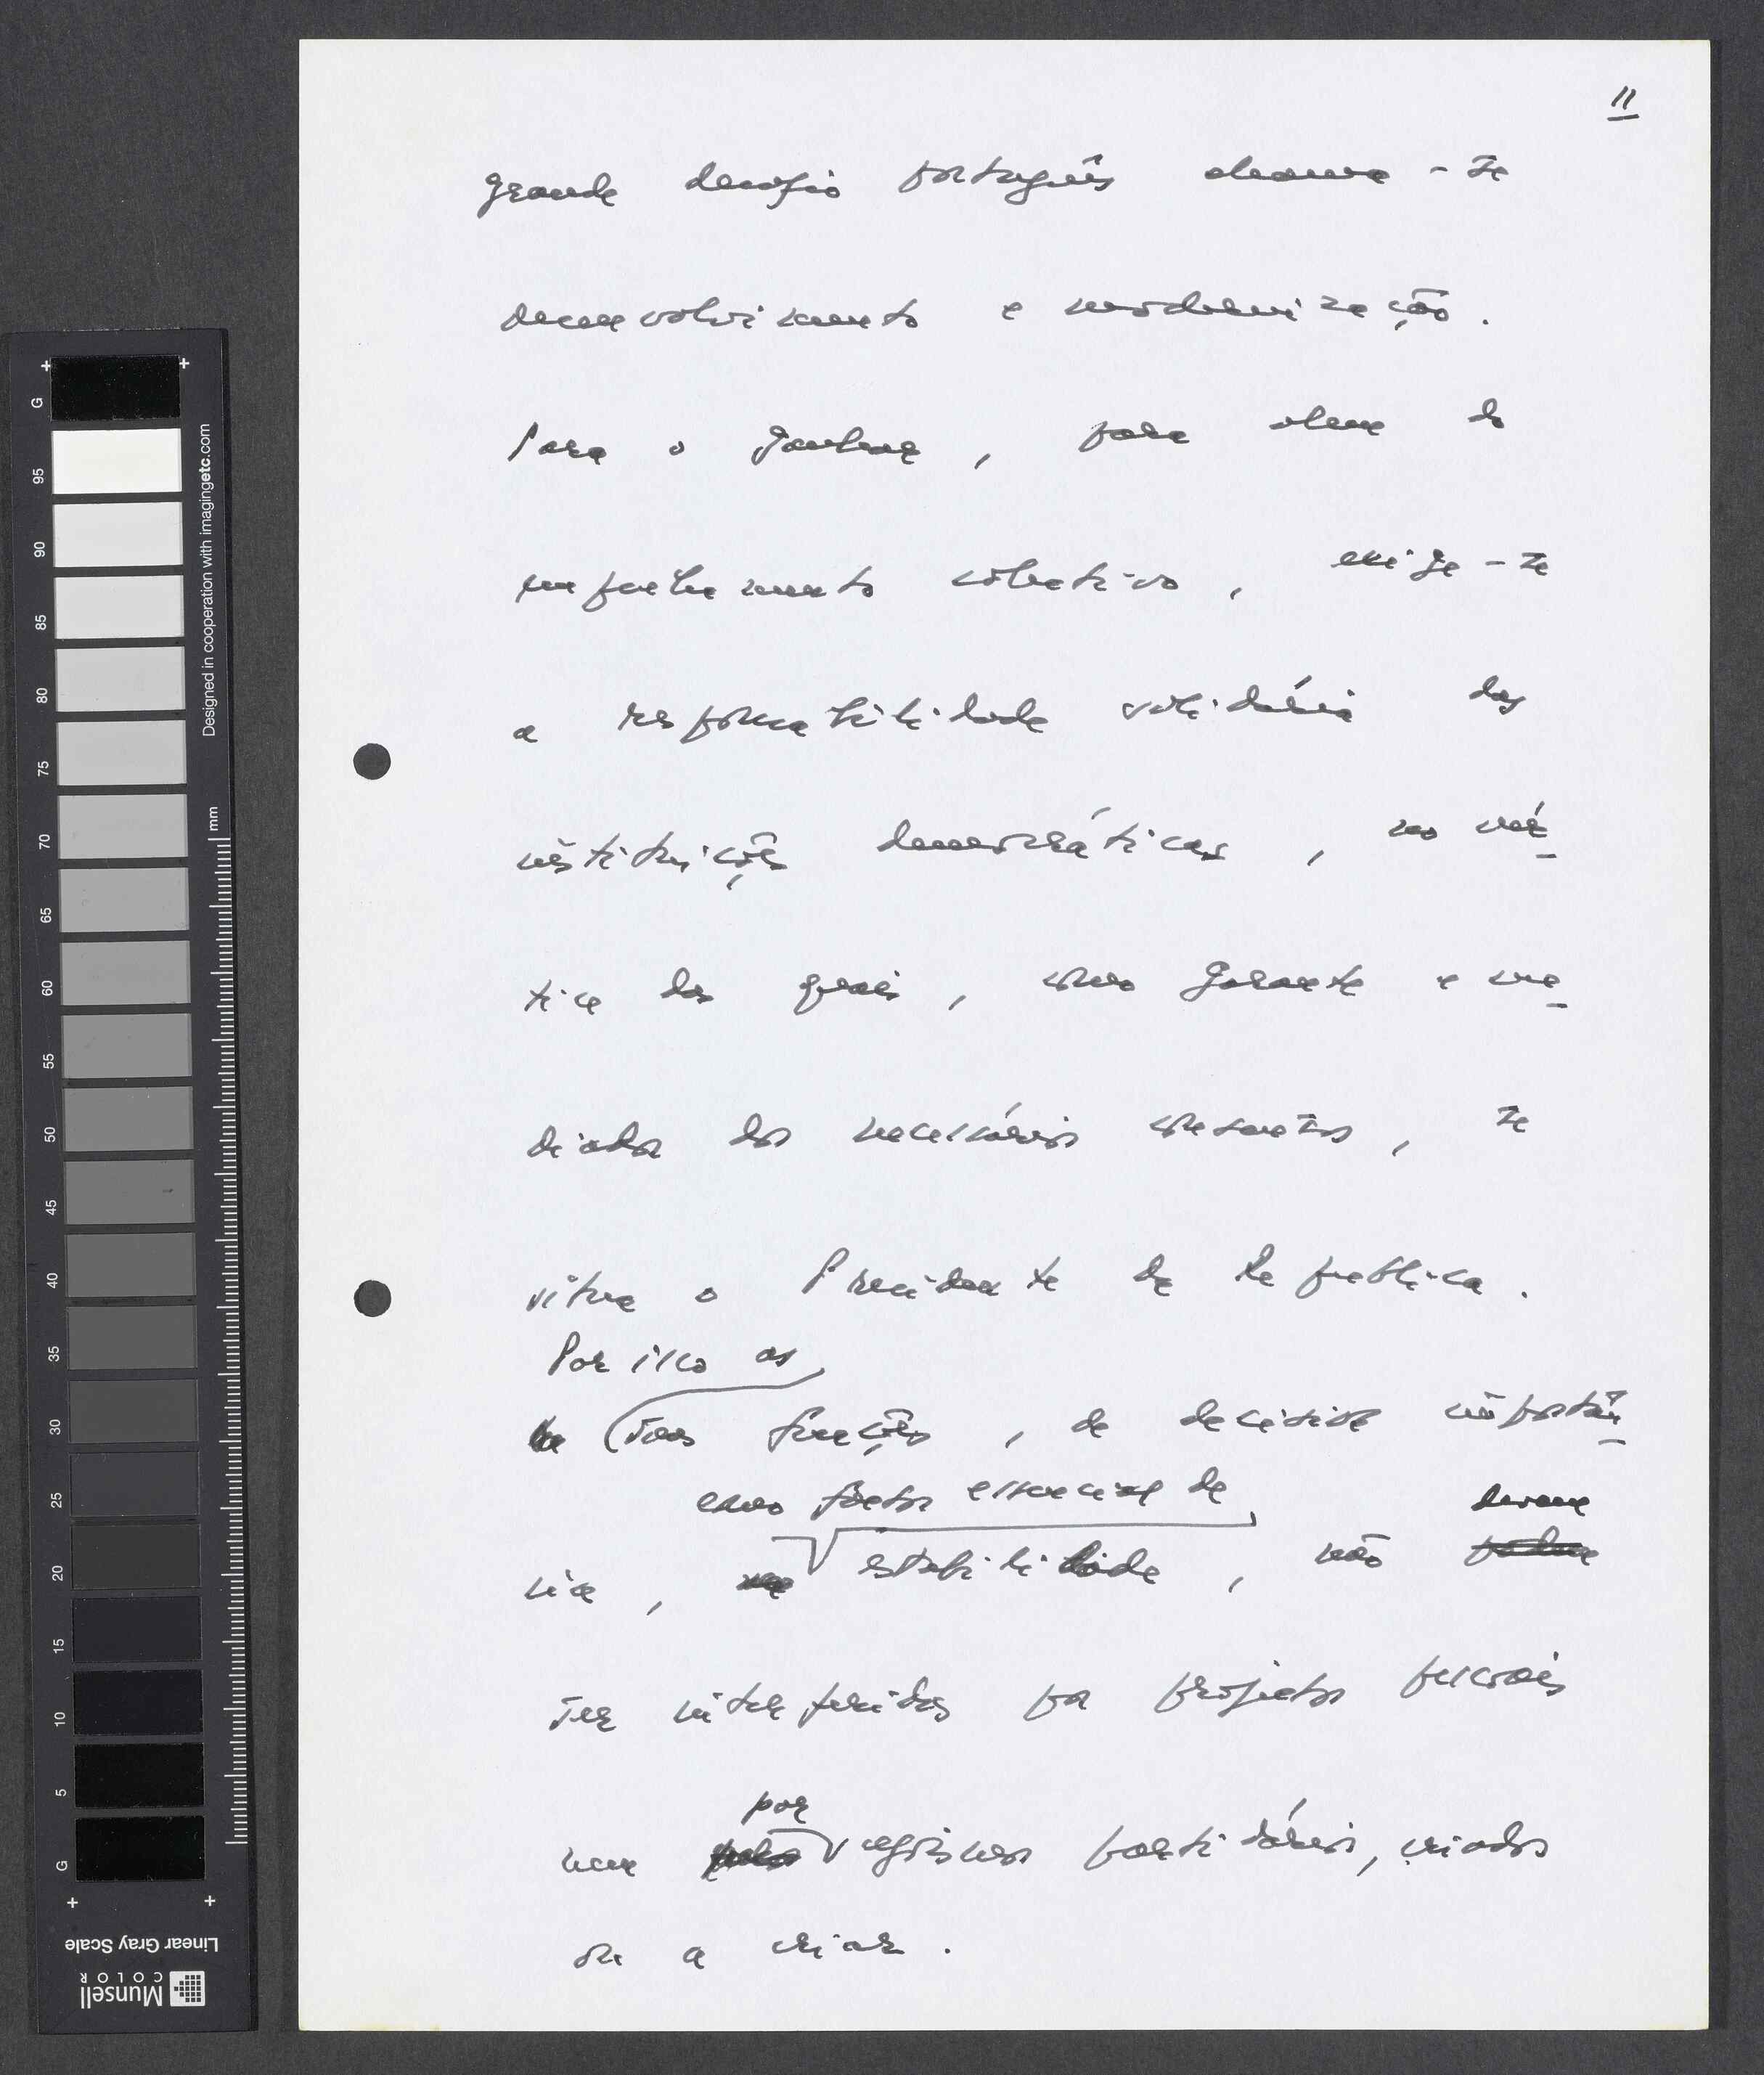 11
grande desafio português chama-se
desenvolvimento e modernização.
Para o ganhar, para além do
empenhamento colectivo, exige-se
a responsabilidade solidária das
instituições democráticas, no vér-
tice das quais, como garante e me-
diador dos necessários consensos, se
situa o Presidente da República.
Por isso as
suas funções, de decisiva importân-
como factor essencial de devem
cia, estabilidade, não
ser interferidas por projectos pessoais
por
nem egoísmos partidários, criados
ou a criar.
Designed in cooperation with imagingetc.com
mm
G 95 90 85 80 75 70 65 60 55 50 45 40 35 30 25 20 15 10 5 G
Linear Gray Scale
Munsell
COLOR